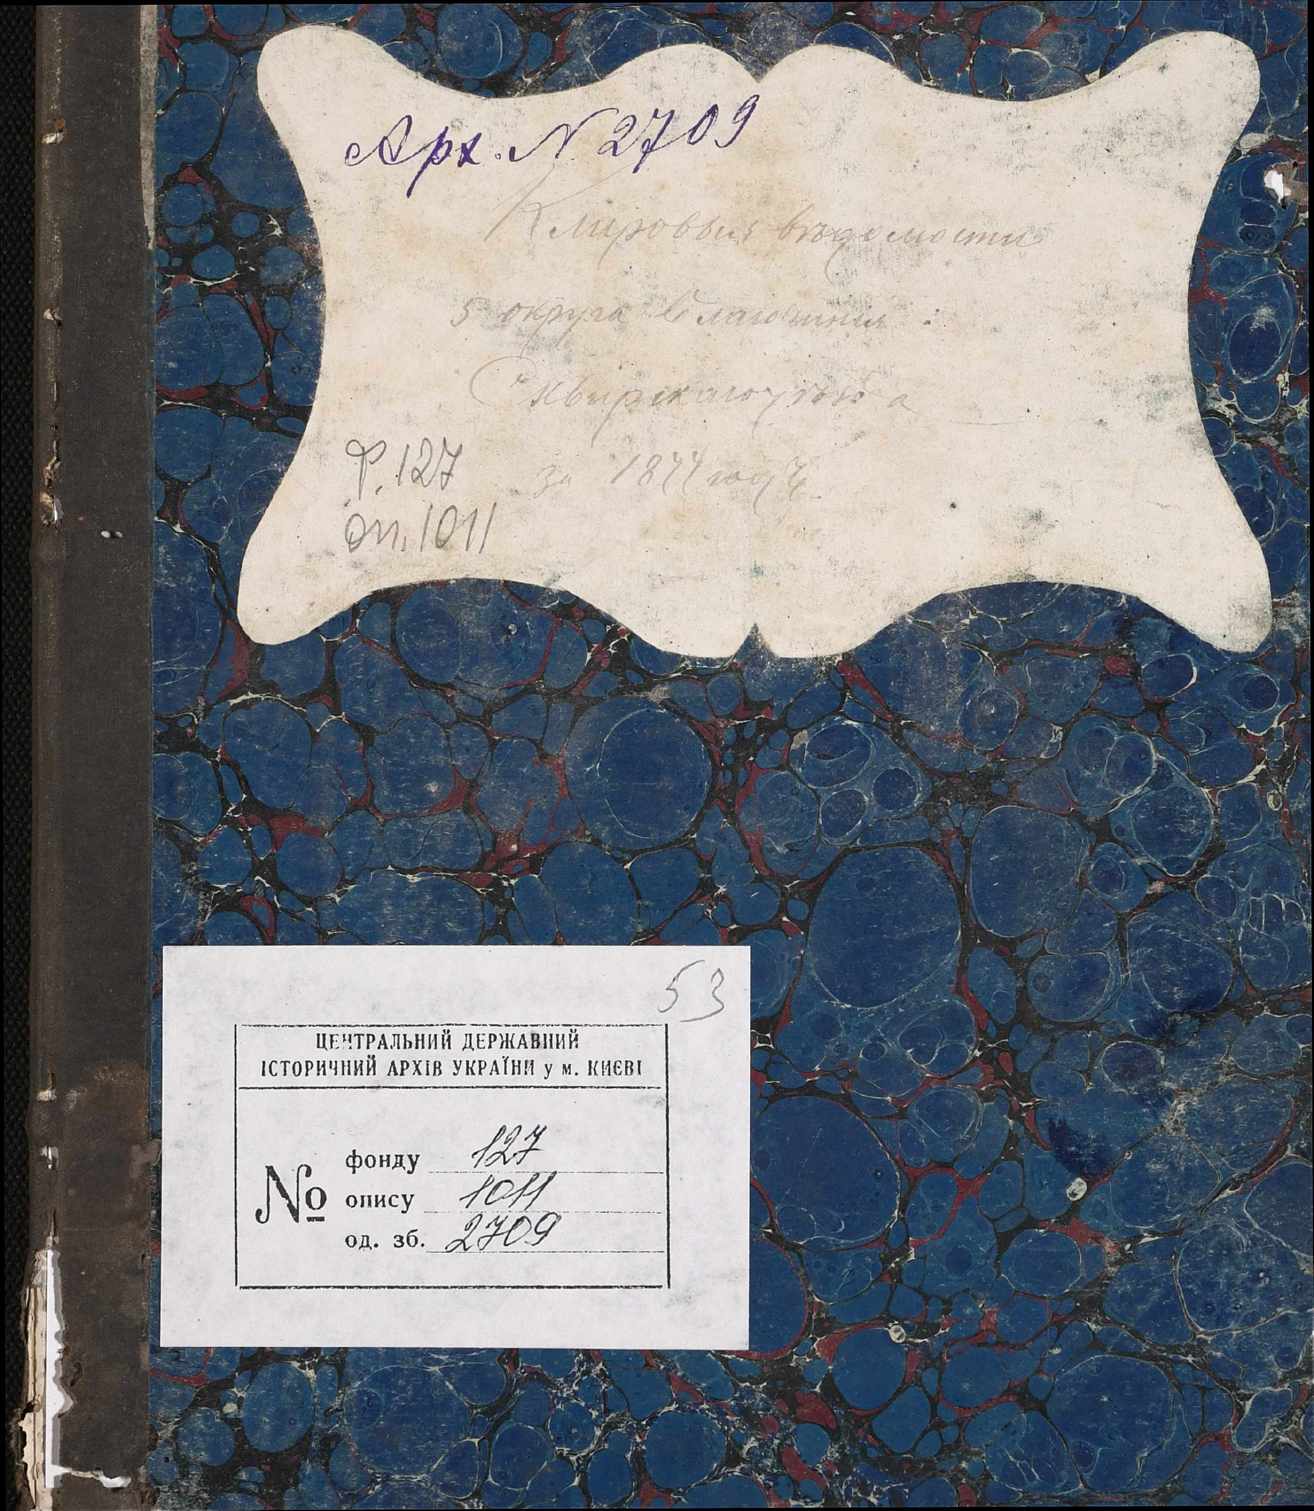 Арх. № 2709
Клировыя ведомости
5 округа благочинія
Сквирскаго уезда
Ф. 127
за 1877 годъ.
оп. 1011
53
ЦЕНТРАЛЬНИЙ ДЕРЖАВНИЙ
ІСТОРИЧНИЙ АРХІВ УКРАЇНИ у м. КИЄВІ
№
фонду 127
опису 1011
од. зб. 2709